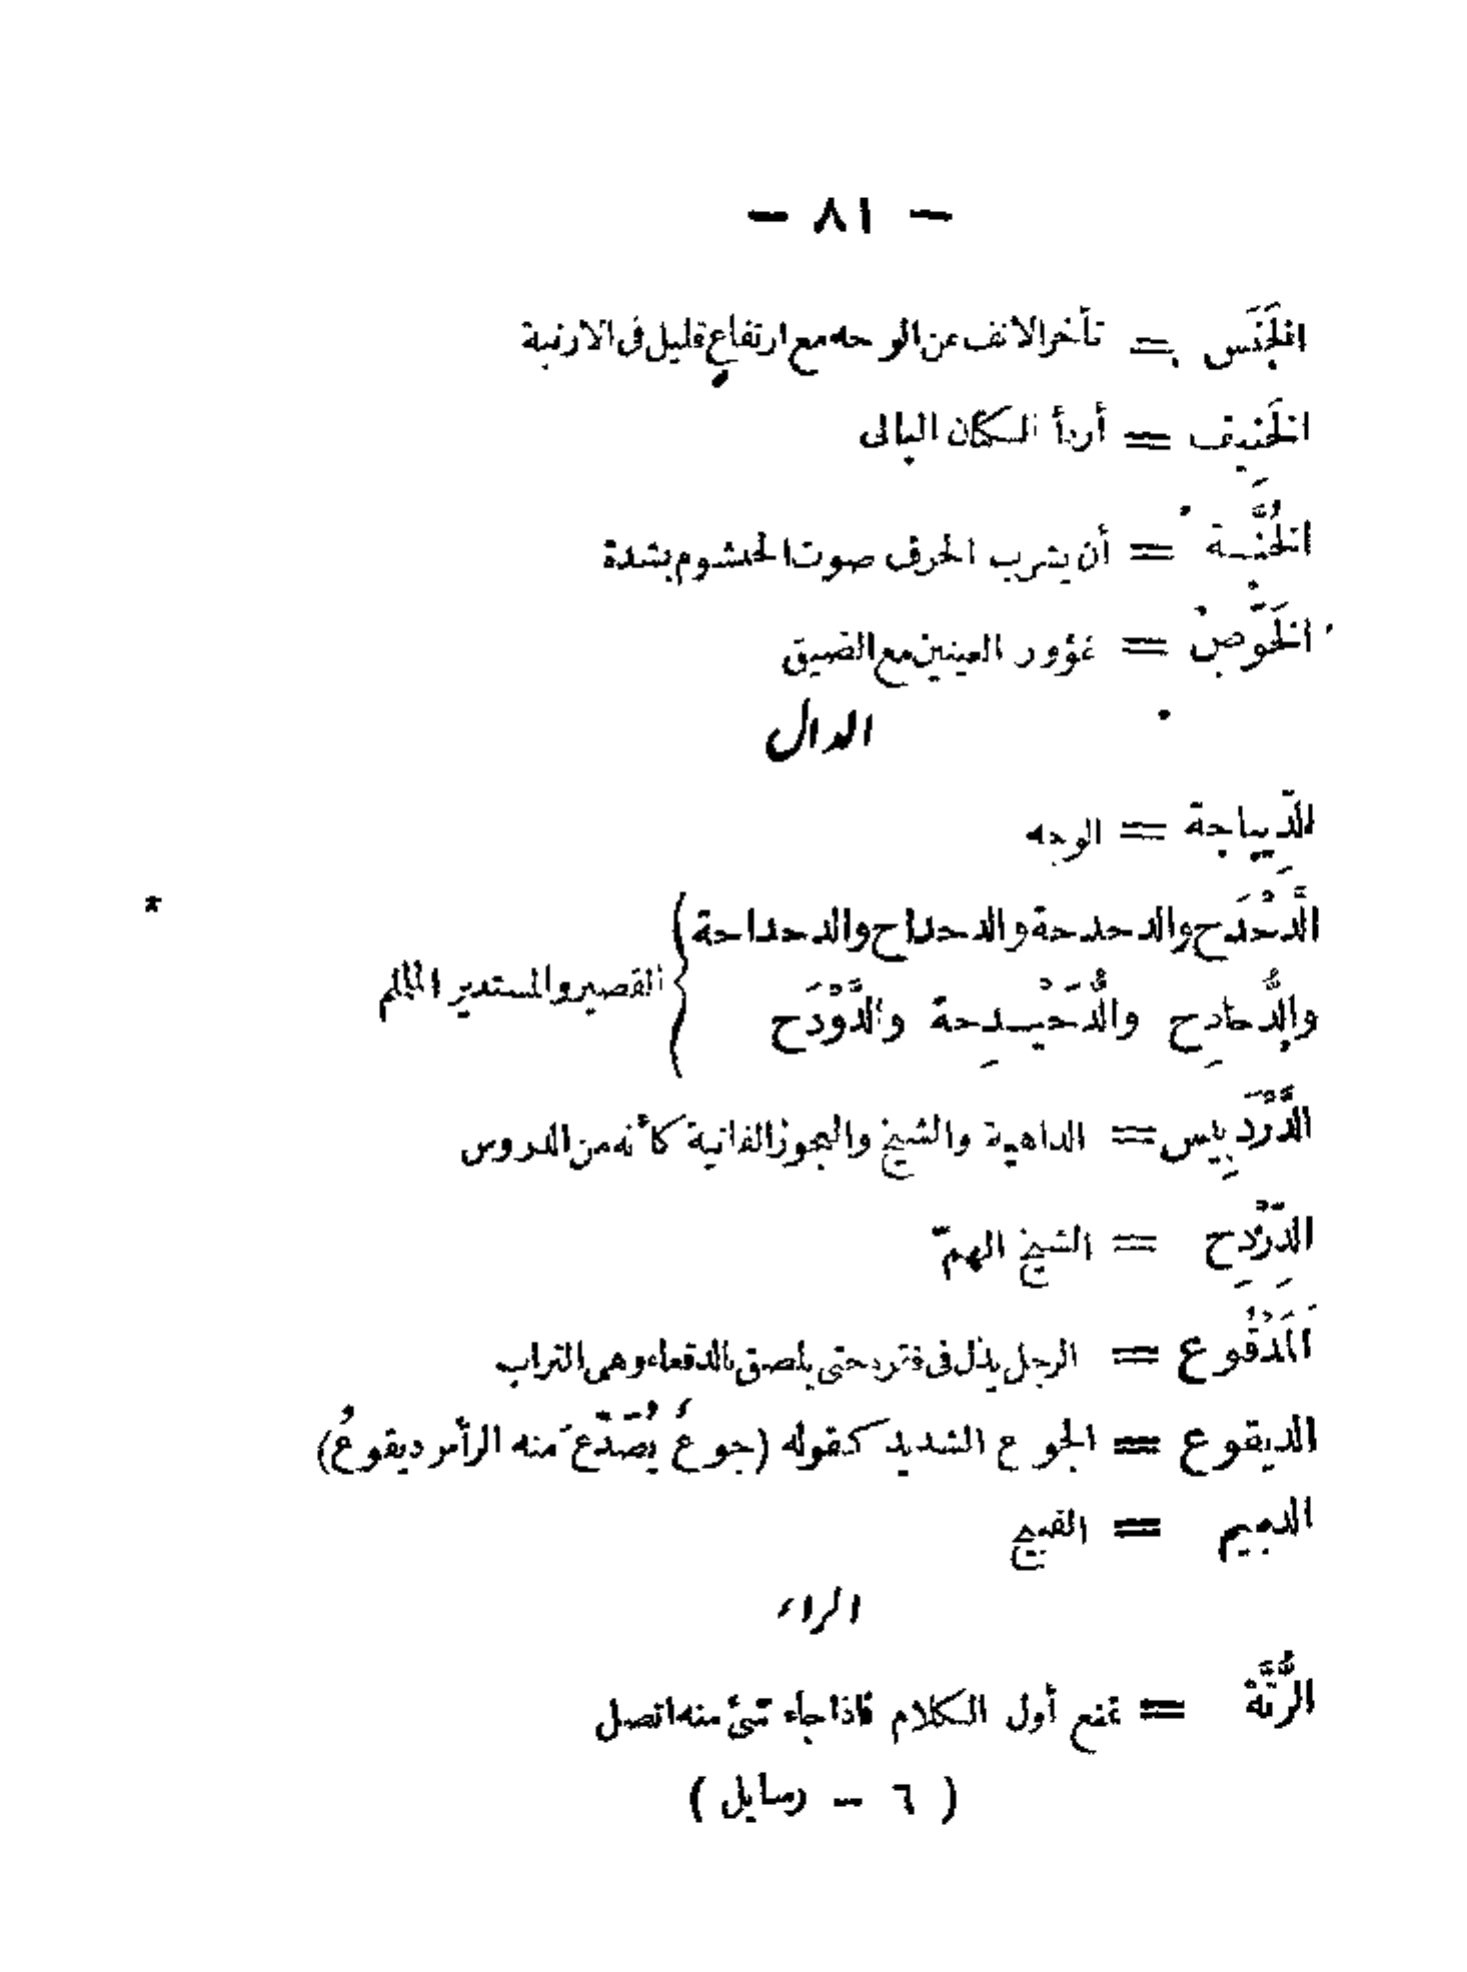 — ٨١ —
الخَنَس = تأخر الانف عن الوجه مع ارتفاع قليل فى الارنبة
الخَنِيف = أردأ الكتان البالى
الخُنَّة = أن يشرب الحرف صوت الخيشوم بشدة
الخَوَص = غؤور العينين مع الضيق
الدال
الدِّيباجة = الوجه
الدَّحْدَح والدحدحة والدحداح والدحداحة
والدُّحادِح والدُّحَيْدِحة والدَّوْدَح } القصير والمستدير الململم
الدَّرْدَبِيس = الداهية والشيخ والعجوز الفانية كأنه من الدروس
الدِّرْدِح = الشيخ الهمّ
المَدْقُوع = الرجل يذل فى فقره حتى يلصق بالدقعاء وهى التراب
الديقوع = الجوع الشديد كقوله (جوعٌ يُصَدَّع منه الرأس ديقوعُ)
الدميم = القبيح
الراء
الرُّتَّة = تمنع أول الكلام فاذا جاء شئ منه اتصل
( ٦ — رسايل )